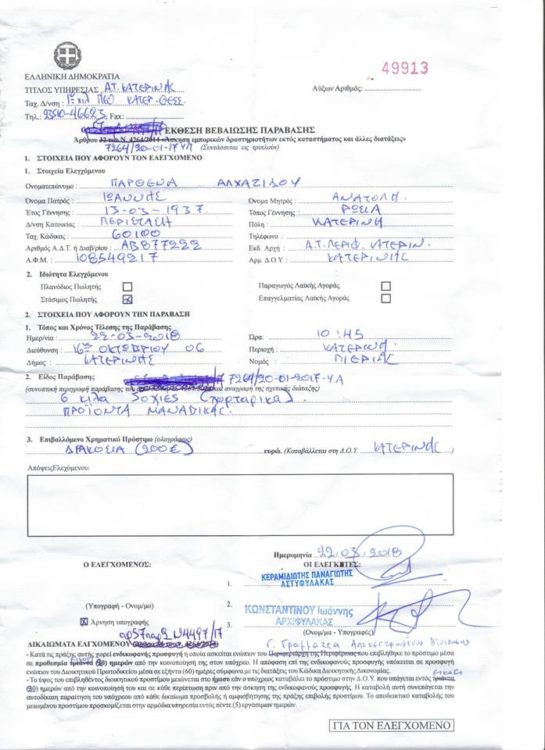 49913
ΕΛΛΗΝΙΚΗ ΔΗΜΟΚΡΑΤΙΑ
ΤΙΤΛΟΣ ΥΠΗΡΕΣΙΑΣ Α.Τ. ΚΑΤΕΡΙΝΗΣ
Αύξων Αριθμός:
Ταχ. Δ/νση : 1ο χιλ ΠΕΟ ΚΑΤΕΡ-ΘΕΣΣ.
Τηλ.: Fax:
ΕΚΘΕΣΗ ΒΕΒΑΙΩΣΗΣ ΠΑΡΑΒΑΣΗΣ
Άρθρου 4264/2014 «Άσκηση εμπορικών δραστηριοτήτων εκτός καταστήματος και άλλες διατάξεις»
7264/20-01-17 ΥΑ (Συντάσσεται εις τριπλούν)
1. ΣΤΟΙΧΕΙΑ ΠΟΥ ΑΦΟΡΟΥΝ ΤΟΝ ΕΛΕΓΧΟΜΕΝΟ
1. Στοιχεία Ελεγχόμενου
Ονοματεπώνυμο : ΠΑΡΘΕΝΑ ΑΛΧΑΖΙΔΟΥ
Όνομα Πατρός : ΙΩΑΝΝΗΣ Όνομα Μητρός : ΑΝΑΤΟΛΗ
Έτος Γέννησης : 13-03-1937 Τόπος Γέννησης : ΡΩΣΙΑ
Δ/νση Κατοικίας : ΠΕΡΙΣΤΑΣΗ Πόλη : ΚΑΤΕΡΙΝΗ
Ταχ. Κώδικας : 60100 Τηλέφωνο :
Αριθμός Α.Δ.Τ. ή Διαβ/ρίου : ΑΒ877222 Εκδ. Αρχή : Α.Τ. ΠΕΡΙΦ. ΚΑΤΕΡΙΝ.
Α.Φ.Μ. : 108549217 Αρμ. Δ.Ο.Υ. : ΚΑΤΕΡΙΝΗΣ
2. Ιδιότητα Ελεγχόμενου
Πλανόδιος Πωλητής Παραγωγός Λαϊκής Αγοράς
Στάσιμος Πωλητής Επαγγελματίας Λαϊκής Αγοράς
2. ΣΤΟΙΧΕΙΑ ΠΟΥ ΑΦΟΡΟΥΝ ΤΗΝ ΠΑΡΑΒΑΣΗ
1. Τόπος και Χρόνος Τέλεσης της Παράβασης
Ημερ/νία : 22-03-2018 Ώρα: 10:45
Διεύθυνση : 16ης ΟΚΤΩΒΡΙΟΥ 06 Περιοχή : ΚΑΤΕΡΙΝΗ
Δήμος : ΚΑΤΕΡΙΝΗΣ Νομός : ΠΙΕΡΙΑΣ
2. Είδος Παράβασης 7264/20-01-2017-ΥΑ
(συνοπτική περιγραφή παράβασης και αναγραφή της σχετικής διάταξης)
6 κιλα ζοχιές (χορταρικά)
ΠΡΟΪΟΝΤΑ ΜΑΝΑΒΙΚΗΣ.
3. Επιβαλλόμενο Χρηματικό Πρόστιμο (ολογράφως)
ΔΙΑΚΟΣΙΑ (200€) ευρώ. (Καταβάλλεται στη Δ.Ο.Υ. ΚΑΤΕΡΙΝΗΣ
Απόψεις Ελεχόμενου:
Ημερομηνία 22.03.2018
Ο ΕΛΕΓΧΟΜΕΝΟΣ: ΟΙ ΕΛΕΓΚΤΕΣ:
1. ΚΕΡΑΜΙΔΙΩΤΗΣ ΠΑΝΑΓΙΩΤΗΣ
ΑΣΤΥΦΥΛΑΚΑΣ
(Υπογραφή - Ονομ/μο) 2. ΚΩΝΣΤΑΝΤΙΝΟΥ Ιωάννης
Άρνηση υπογραφής 3. ΑΡΧΙΦΥΛΑΚΑΣ
(Ονομ/μο - Υπογραφές)
αρ57παρ2 Ν4497/17
ΔΙΚΑΙΩΜΑΤΑ ΕΛΕΓΧΟΜΕΝΟΥ Γ. Γραμματέα Αποκεντρωμένης Διοίκησης
- Κατά της πράξης αυτής χωρεί ενδικοφανής προσφυγή η οποία ασκείται ενώπιον του Περιφερειάρχη της Περιφέρειας που επιβλήθηκε το πρόστιμο μέσα
σε προθεσμία ημερών από την κοινοποίηση της στον υπόχρεο. Η απόφαση επί της ενδικοφανούς προσφυγής υπόκειται σε προσφυγή
ενώπιον του Διοικητικού Πρωτοδικείου μέσα σε εξήντα (60) ημέρες σύμφωνα με τις διατάξεις του Κώδικα Διοικητικής Δικονομίας.
- Το ύψος του επιβληθέντος διοικητικού προστίμου μειώνεται στο ήμισυ εάν ο υπόχρεος καταβάλει το πρόστιμο στην Δ.Ο.Υ. που υπάγεται εντός
ημερών από την κοινοποίησή του και σε κάθε περίπτωση πριν από την άσκηση της ενδικοφανούς προσφυγής. Η καταβολή αυτή συνεπάγεται την
αυτοδίκαιη παραίτηση του υπόχρεου από κάθε δικαίωμα προσβολής ή αμφισβήτησης της πράξης επιβολής προστίμου. Το αποδεικτικό καταβολής του
μειωμένου προστίμου προσκομίζεται στην αρμόδια υπηρεσία εντός πέντε (5) εργασίμων ημερών.
ΓΙΑ ΤΟΝ ΕΛΕΓΧΟΜΕΝΟ